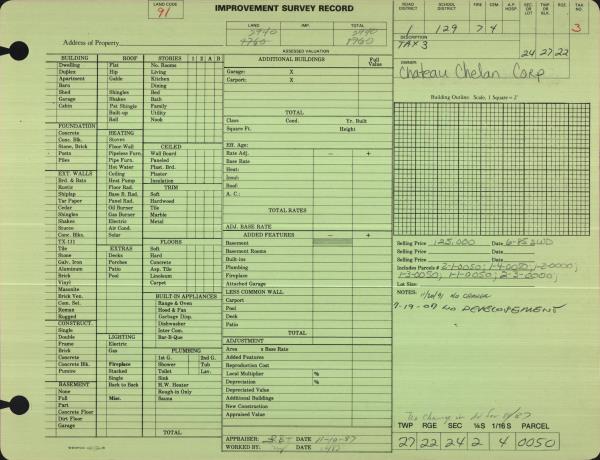 LAND CODE
91
IMPROVEMENT SURVEY RECORD
LAND IMP. TOTAL
5940 5940
Address of Property
ASSESSED VALUATION
ROAD DISTRICT SCHOOL DISTRICT FIRE CEM. A.P. HOSP. SEC OR LOT TWP OR BLK. RGE. TAX NO.
1 129 7 4 3
DESCRIPTION
TAX 3 24 27 22
OWNER:
Chateau Chelan Corp
Building Outline: Scale, 1 Square = 2'
BUILDING ROOF STORIES 1 2 A B
Dwelling Flat No. Rooms
Duplex Hip Living
Apartment Gable Kitchen
Barn Dining
Shed Shingles Bed
Garage Shakes Bath
Cabin Pat Shingle Family
Built-up Utility
Roll Nook
FOUNDATION
Concrete HEATING
Conc. Blk. Stoves
Stone, Brick Floor-Wall CEILED
Posts Pipeless Furn. Wall Board
Piles Pipe Furn. Paneled
Hot Water Plast. Brd.
EXT. WALLS Ceiling Plaster
Brd. & Bats Heat Pump Insulation
Rustic Floor Rad. TRIM
Shiplap Base B. Rad. Soft
Tar Paper Panel Rad. Hardwood
Cedar Oil Burner Tile
Shingles Gas Burner Marble
Shakes Electric Metal
Stucco Air Cond.
Conc. Blks. Solar
TX-111 FLOORS
Tile EXTRAS Soft
Stone Decks Hard
Galv. Iron Porches Concrete
Aluminum Patio Asp. Tile
Brick Pool Linoleum
Vinyl Carpet
Masonite
Brick Ven. BUILT-IN APPLIANCES
Com. Sel. Range & Oven
Roman Hood & Fan
Rugged Garbage Disp.
CONSTRUCT. Dishwasher
Single Inter Com.
Double LIGHTING Bar-B-Que
Frame Electric
Brick Gas PLUMBING
Concrete 1st G. 2nd G.
Concrete Blk. Fireplace Shower Tub
Pumice Stacked Toilet Lav.
Single Sink
BASEMENT Back to Back H.W. Heater
None Rough-in Only
Full Misc. Sauna
Part
Concrete Floor
Dirt Floor
Garage TOTAL
ADDITIONAL BUILDINGS Full Value
Garage: X
Carport: X
TOTAL
Class Cond. Yr. Built
Square Ft. Height
Eff. Age:
Rate Adj. − +
Base Rate
Heat:
Insul:
Roof:
A. C.:
TOTAL RATES
ADJ. BASE RATE
ADDED FEATURES − +
Basement
Basement Rooms
Built-ins
Plumbing
Fireplace
Attached Garage
LESS COMMON WALL
Carport
Pool
Deck
Patio
TOTAL
ADJUSTMENT
Area x Base Rate
Added Features
Reproduction Cost
Local Multiplier %
Depreciation %
Depreciated Value
Additional Buildings
New Construction
Appraised Value
APPRAISER: DATE 11-10-87
WORKED BY: DATE
Selling Price 125,000 Date
Selling Price Date
Selling Price Date
Includes Parcels #
Lot Size:
NOTES: NO CHANGE
7-19-07 NO DEVELOPEMENT
TWP RGE SEC ¼S 1/16S PARCEL
27 22 24 2 4 0050